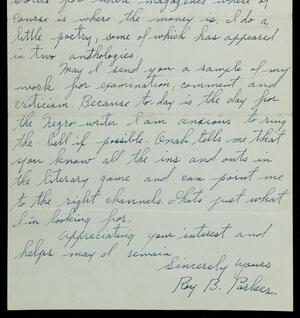 for those magazines where of
course is where the money is. I do a
little poetry, some of which has appeared
in two anthologies.
May I send you a sample of my
work for examination, comment and
criticism. Because to-day is the day for
the Negro writer I am anxious to ring
the bell if possible. Onah tells me that
you know all the ins and outs in
the literary game and can point me
to the right channels. That's just what
I'm looking for.
Appreciating your interest and
helps may I remain
Sincerely yours
Roy B. Parker.